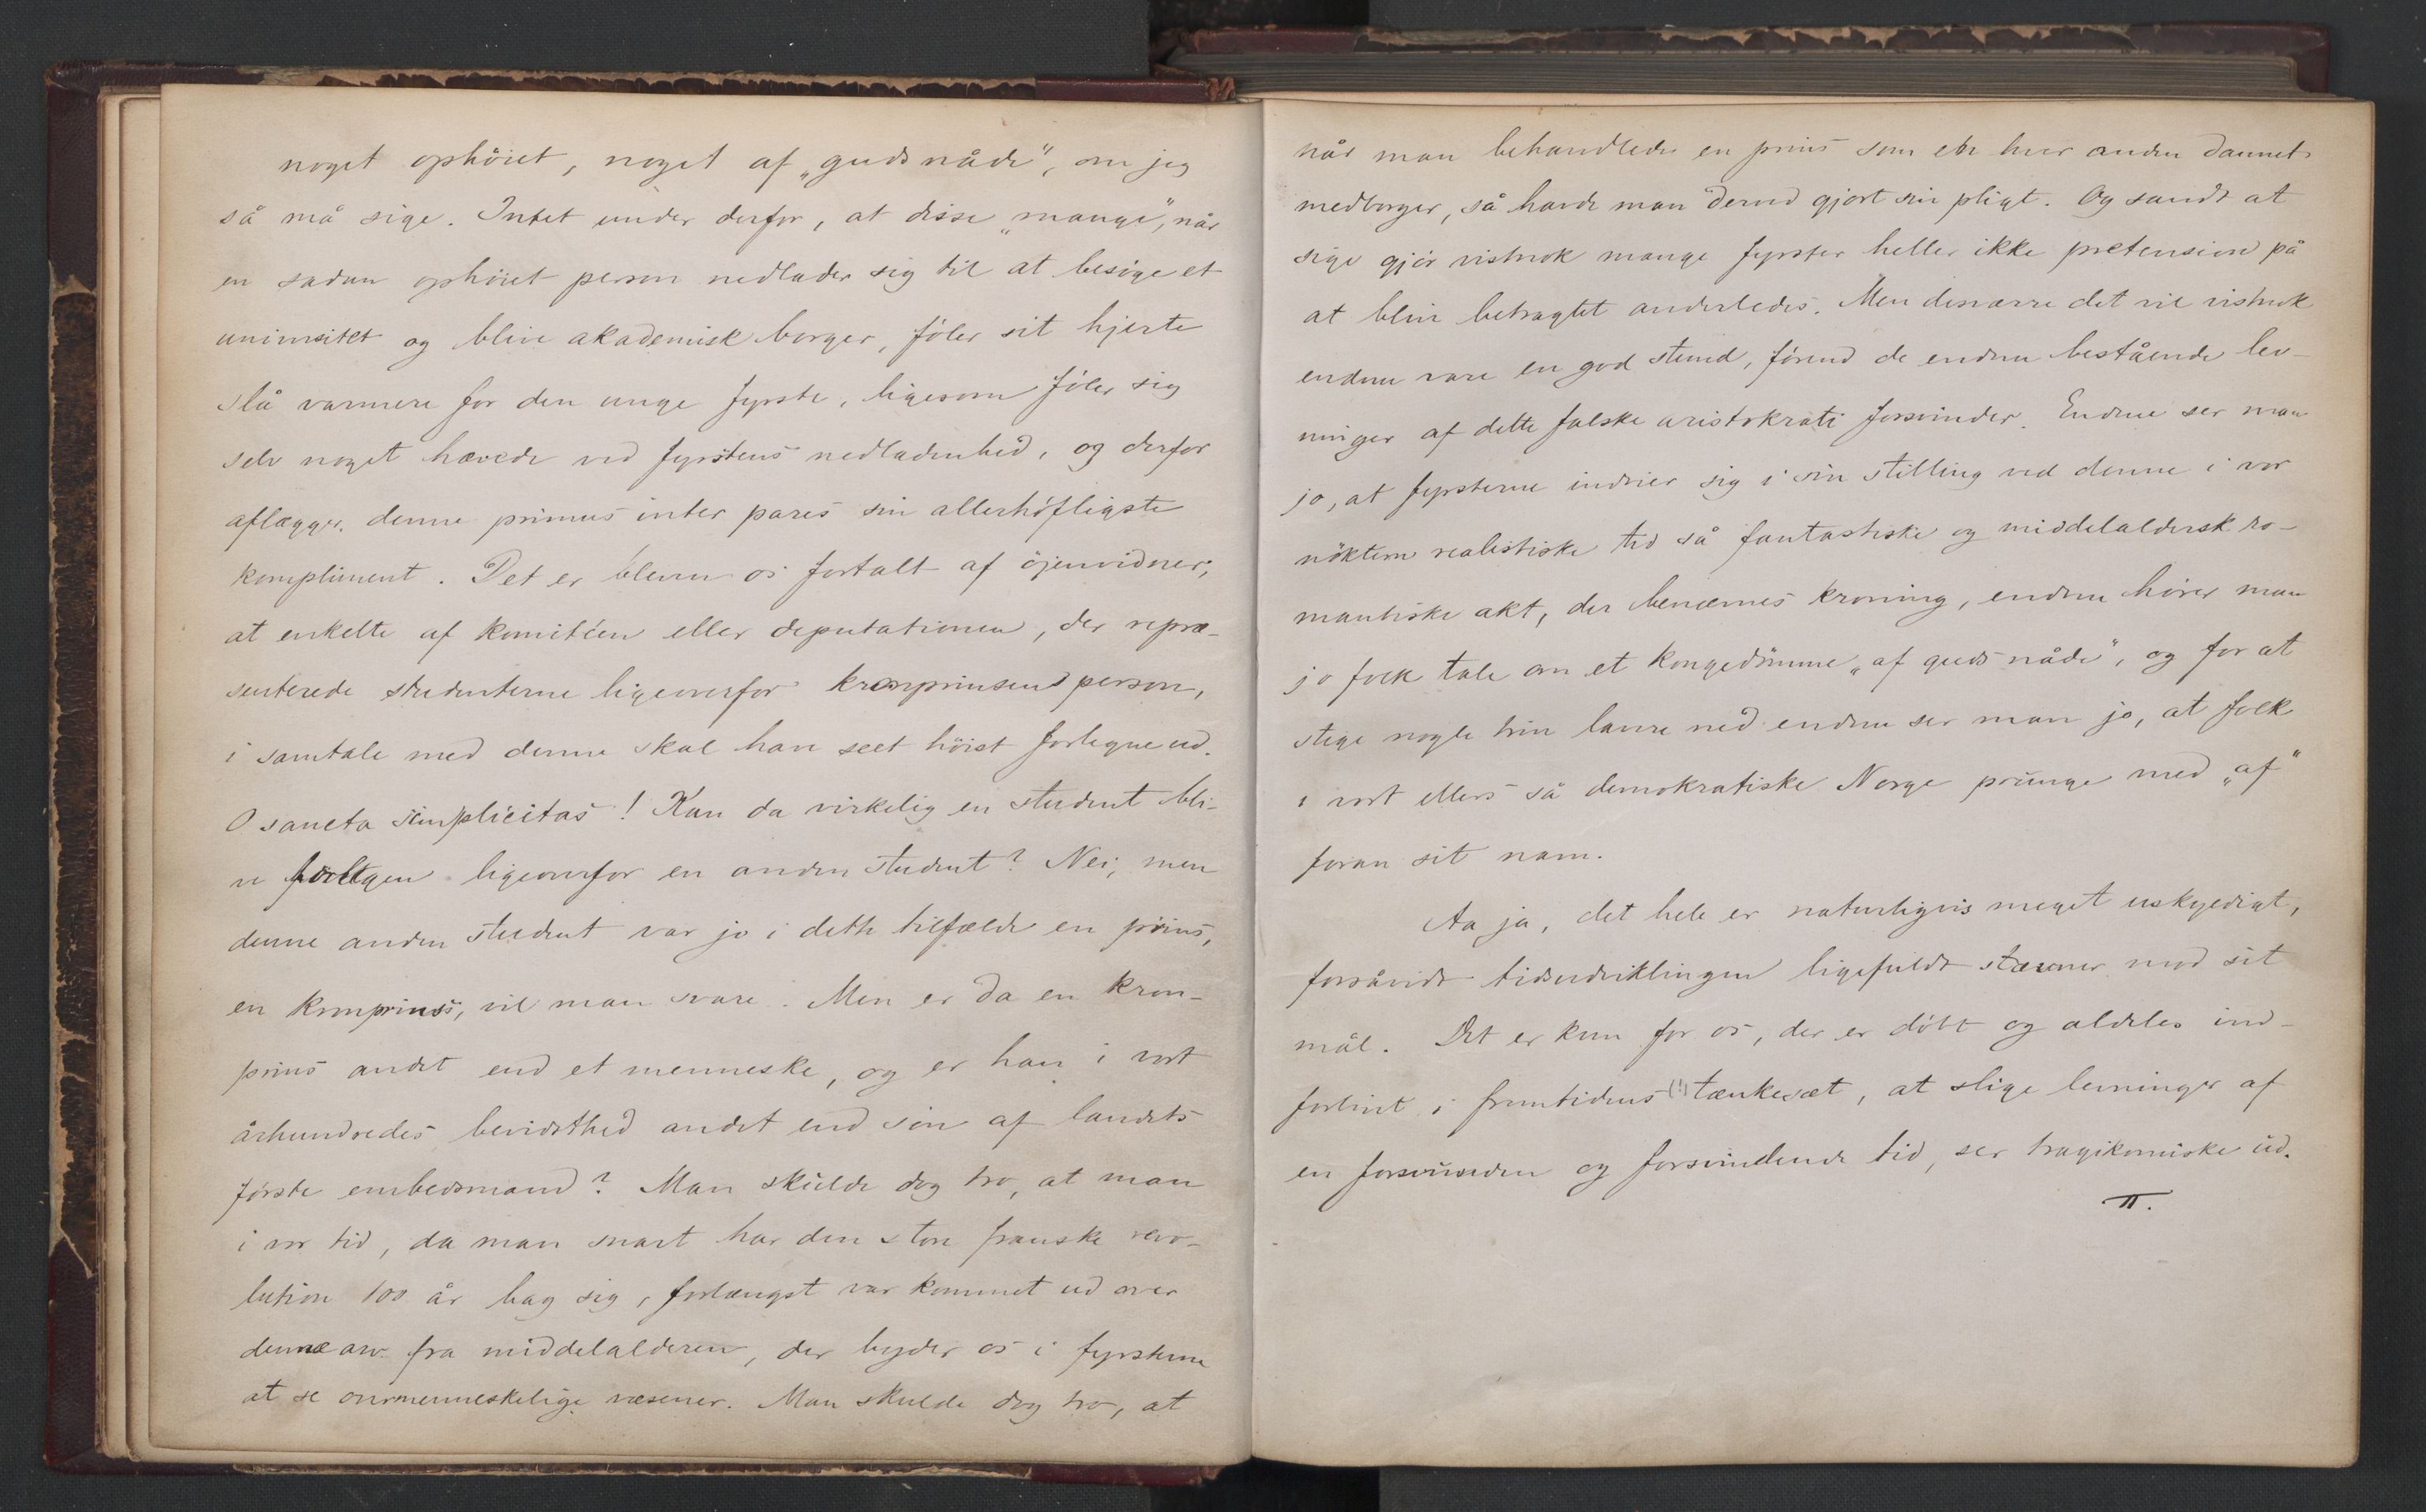 noget ophöiet, noget af „guds nåde", om jeg
så må sige. Intet under derfor, at disse „mange", når
en sadan ophöiet person nedlader sig til at besöge et
universitet og blive akademisk borger, föler sit hjerte
slå varmere for den unge fyrste, ligesom föler sig
selv noget hævede ved fyrstens nedladenhed, og derfor
aflægger denne primus inter pares sin allerhöfligste
kompliment. Det er bleven os fortalt af öjenvidner,
at enkelte af komitéen eller deputationen, der repræ-
senterede studenterne ligeoverfor kronprinsens person,
i samtale med denne skal have seet höist forlegne ud.
O sancta simplicitas! Kan da virkelig en student bli-
ve forlegen ligeoverfor en anden student? Nei, men
denne anden student var jo i dette tilfælde en prins,
en kronprins, vil man svare. Men er da en kron-
prins andet end et menneske, og er han i vort
århundredes bevidsthed andet end sön af landets
förste embedsmand? Man skulde dog tro, at man
i vor tid, da man snart har den store franske revo-
lution 100 år bag sig, forlængst var kommet ud over
denne arv fra middelalderen, der byder os i fyrsterne
at se overmenneskelige væsener. Man skulde dog tro, at
når man behandlede en prins som en hver anden dannet
medborger, så havde man derved gjort sin pligt. Og sandt at
sige gjör vistnok mange fyrster heller ikke pretension på
at blive betragtet anderledes. Men desværre det vil vistnok
endnu vare en god stund, förend de endnu bestående lev-
ninger af dette falske aristokrati forsvinder. Endnu ser man
jo, at fyrsterne indvier sig i sin stilling ved denne i vor
nöktern realistiske tid så fantastiske og middelaldersk ro-
mantiske akt, der benævnes kroning, endnu hörer man
jo folk tale om et kongedömme „af guds nåde", og for at
stige nogle trin lavere ned endnu ser man jo, at folk
i vort ellers så demokratiske Norge prunge med „af"
foran sit navn.
Aa ja, det hele er naturligvis meget uskyldigt,
forsåvidt tidsudviklingen ligefuldt stævner mod sit
mål. Det er kun for os, der er döbt og aldeles ind-
forlivt i fremtidens (!) tænkesæt, at slige levninger af
en forsvunden og forsvindende tid, ser tragikomiske ud.
π.